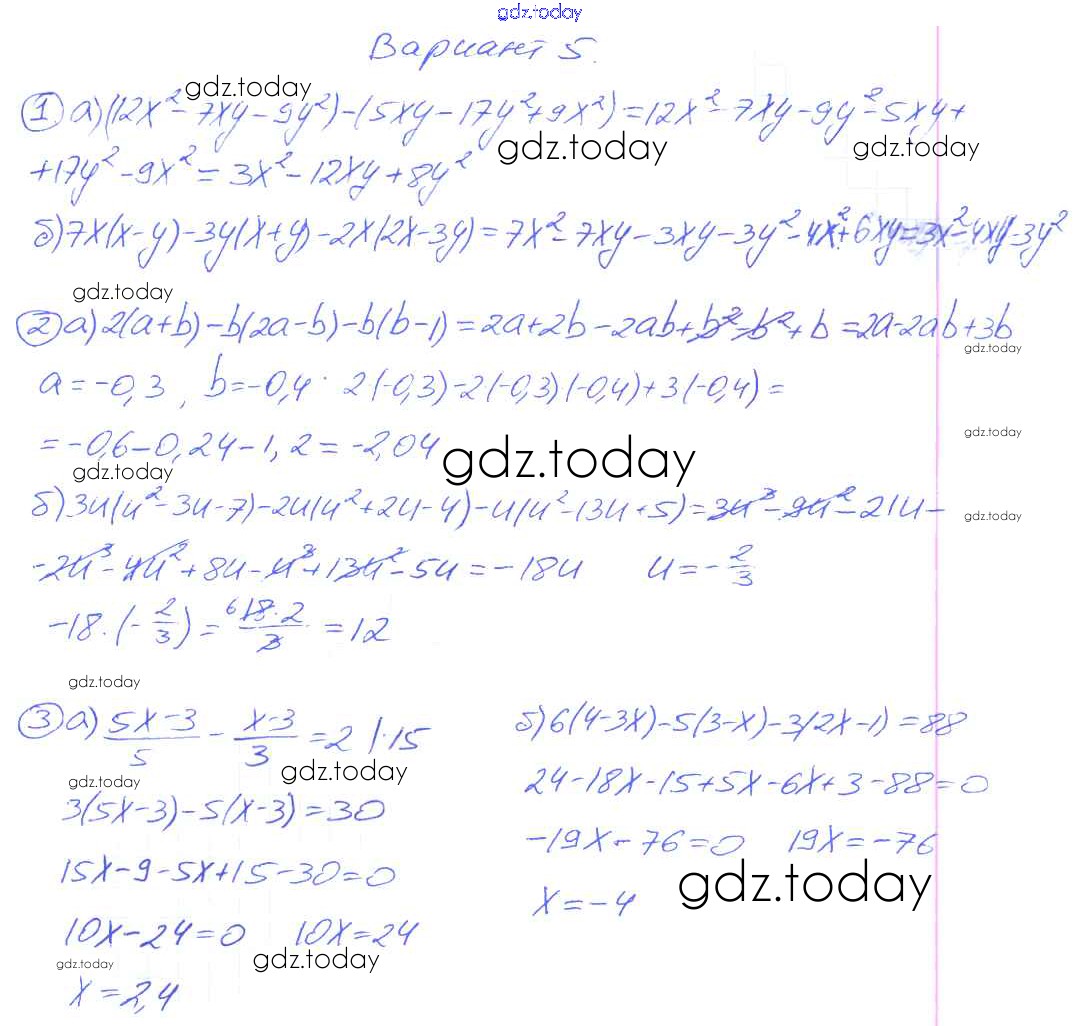 gdz.today
Вариант 5.
gdz.today
① а) (12x² - 7xy - 9y²) - (5xy - 17y² + 9x²) = 12x² - 7xy - 9y² - 5xy +
gdz.today gdz.today
+ 17y² - 9x² = 3x² - 12xy + 8y²
б) 7x(x - y) - 3y(x + y) - 2x(2x - 3y) = 7x² - 7xy - 3xy - 3y² - 4x² + 6xy = 3x² - 4xy - 3y²
gdz.today
② а) 2(a + b) - b(2a - b) - b(b - 1) = 2a + 2b - 2ab + b² - b² + b = 2a - 2ab + 3b
gdz.today
a = -0,3, b = -0,4. 2(-0,3) - 2(-0,3)(-0,4) + 3(-0,4) =
gdz.today
= -0,6 - 0,24 - 1,2 = -2,04
gdz.today gdz.today
б) 3u(u² - 3u - 7) - 2u(u² + 2u - 4) - u(u² - 13u + 5) = 3u³ - 9u² - 21u -
gdz.today
- 2u³ - 4u² + 8u - u³ + 13u² - 5u = -18u u = -2/3
-18 · (-2/3) = 6 18·2/3 = 12
gdz.today
③ а) (5x - 3)/5 - (x - 3)/3 = 2 | · 15
gdz.today
gdz.today
3(5x - 3) - 5(x - 3) = 30
15x - 9 - 5x + 15 - 30 = 0
10x - 24 = 0 10x = 24
gdz.today gdz.today
x = 2,4
б) 6(4 - 3x) - 5(3 - x) - 3(2x - 1) = 88
24 - 18x - 15 + 5x - 6x + 3 - 88 = 0
-19x - 76 = 0 19x = -76
gdz.today
x = -4